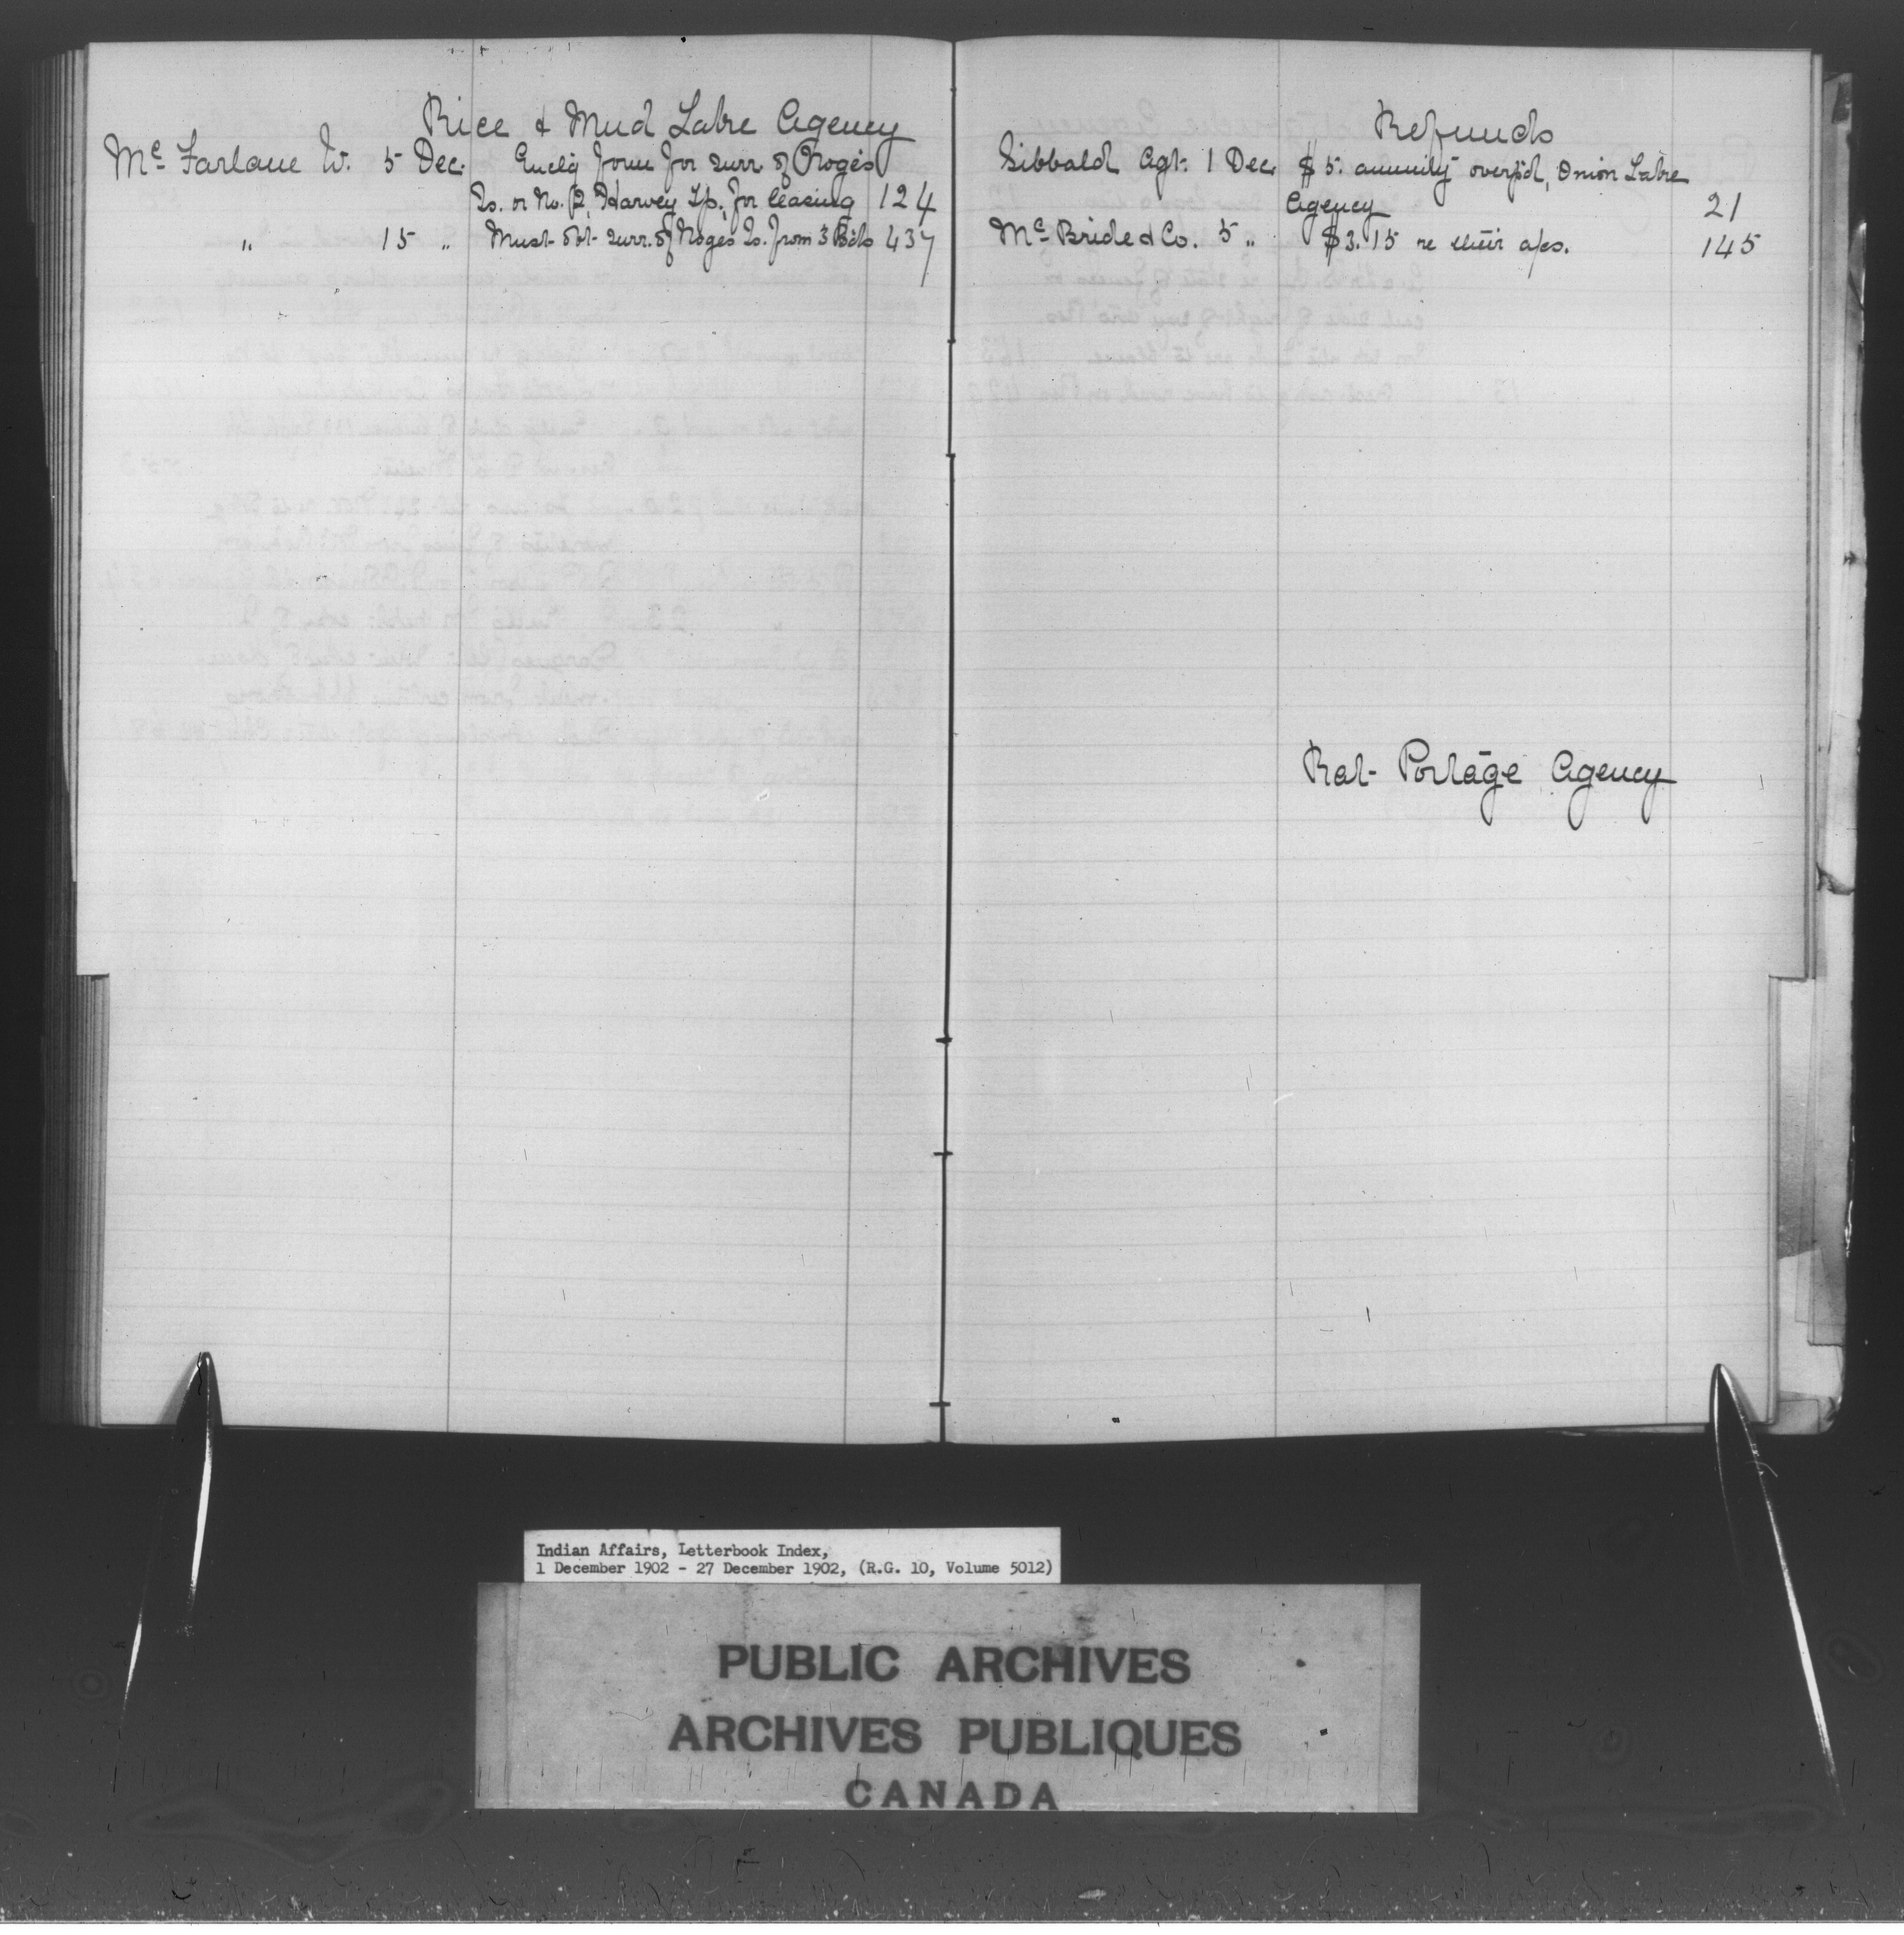 Rice & Mud Lake Agency
Mc Farlane W. 5 Dec. Encl'g form for surr. of Nogés
Is. or No. 2, Harvey Tp. for leasing 124
" 15 " Must obt. surr. of Nogés Is. from 3 Bds 437
Refunds
Sibbald Agt. 1 Dec. $5. annuity overp'd, Onion Lake
Agency 21
Mc Bride & Co. 5 " $3.15 re their a/cs. 145
Rat Portage Agency
Indian Affairs, Letterbook Index,
1 December 1902 - 27 December 1902, (R.G. 10, Volume 5012)
PUBLIC ARCHIVES
ARCHIVES PUBLIQUES
CANADA